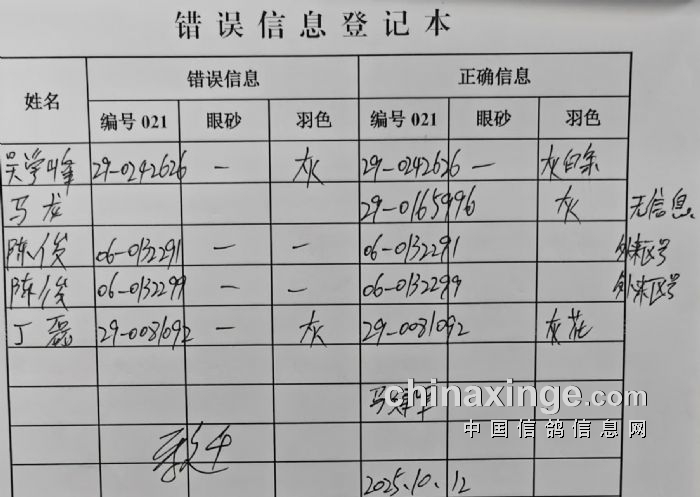 错误信息登记本
姓名 错误信息 正确信息
编号 021 眼砂 羽色 编号 021 眼砂 羽色
吴学峰 29-0242626 — 灰 29-0242626 — 灰白条
马龙 29-0165996 灰 无信息
陈俊 06-0132291 — — 06-0132291 外来区号
陈俊 06-0132299 — — 06-0132299 外来区号
丁磊 29-0081092 — 灰 29-0081092 灰花
chinaxinge.com
中国信鸽信息网
2025.10.12